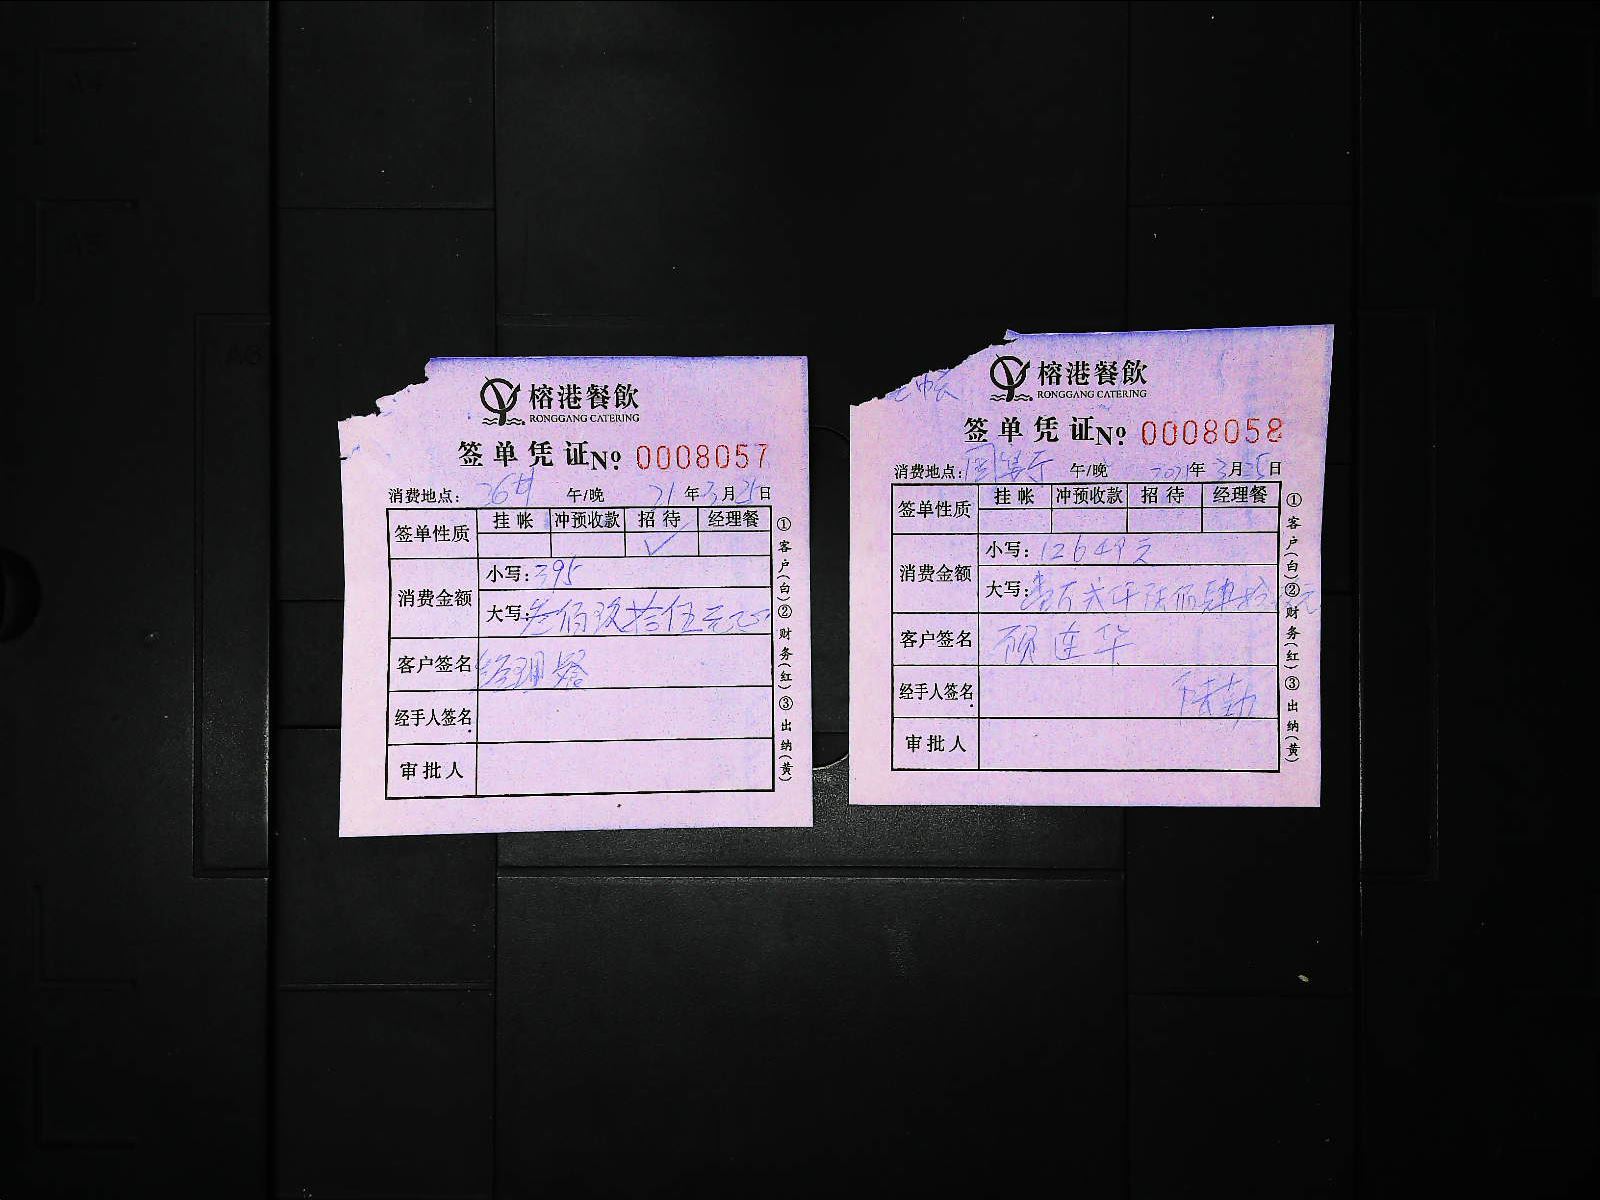 榕港餐飲
RONGGANG CATERING
签单凭证 No 0008057
消费地点: 午/晚 21年3月25日
签单性质 挂帐 冲预收款 招待 经理餐
✓
消费金额 小写: 395
大写: 叁佰玖拾伍元
客户签名 经理餐
经手人签名
审批人
①客户(白)②财务(红)③出纳(黄)
榕港餐飲
RONGGANG CATERING
签单凭证 No 0008058
消费地点: 午/晚 2021年3月25日
签单性质 挂帐 冲预收款 招待 经理餐
消费金额 小写: 12649元
大写: 壹万贰仟陆佰肆拾 元
客户签名 顾连华
经手人签名 陆勤
审批人
①客户(白)②财务(红)③出纳(黄)